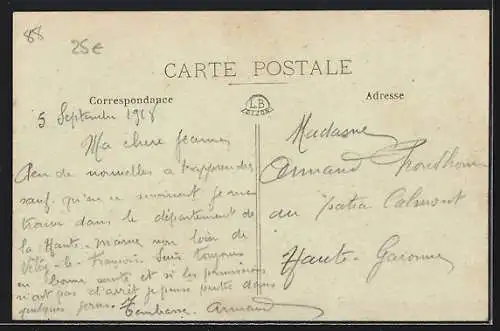 88
25€
CARTE POSTALE
Correspondance
LB
DIJON
Adresse
5 Septembre 1918
Ma chere Jeanne
Rien de nouvelles a t'apprendre
sauf qu'en ce moment je me
trouve dans le département de
la Haute-Marne non loin de
Vitry-le-François. Suis toujours
en bonne santé et si les permissions
n'ont pas d'arrêt je pense partir dans
quelques jours. Armand
Madame
Armand
au Calmont
Haute-Garonne